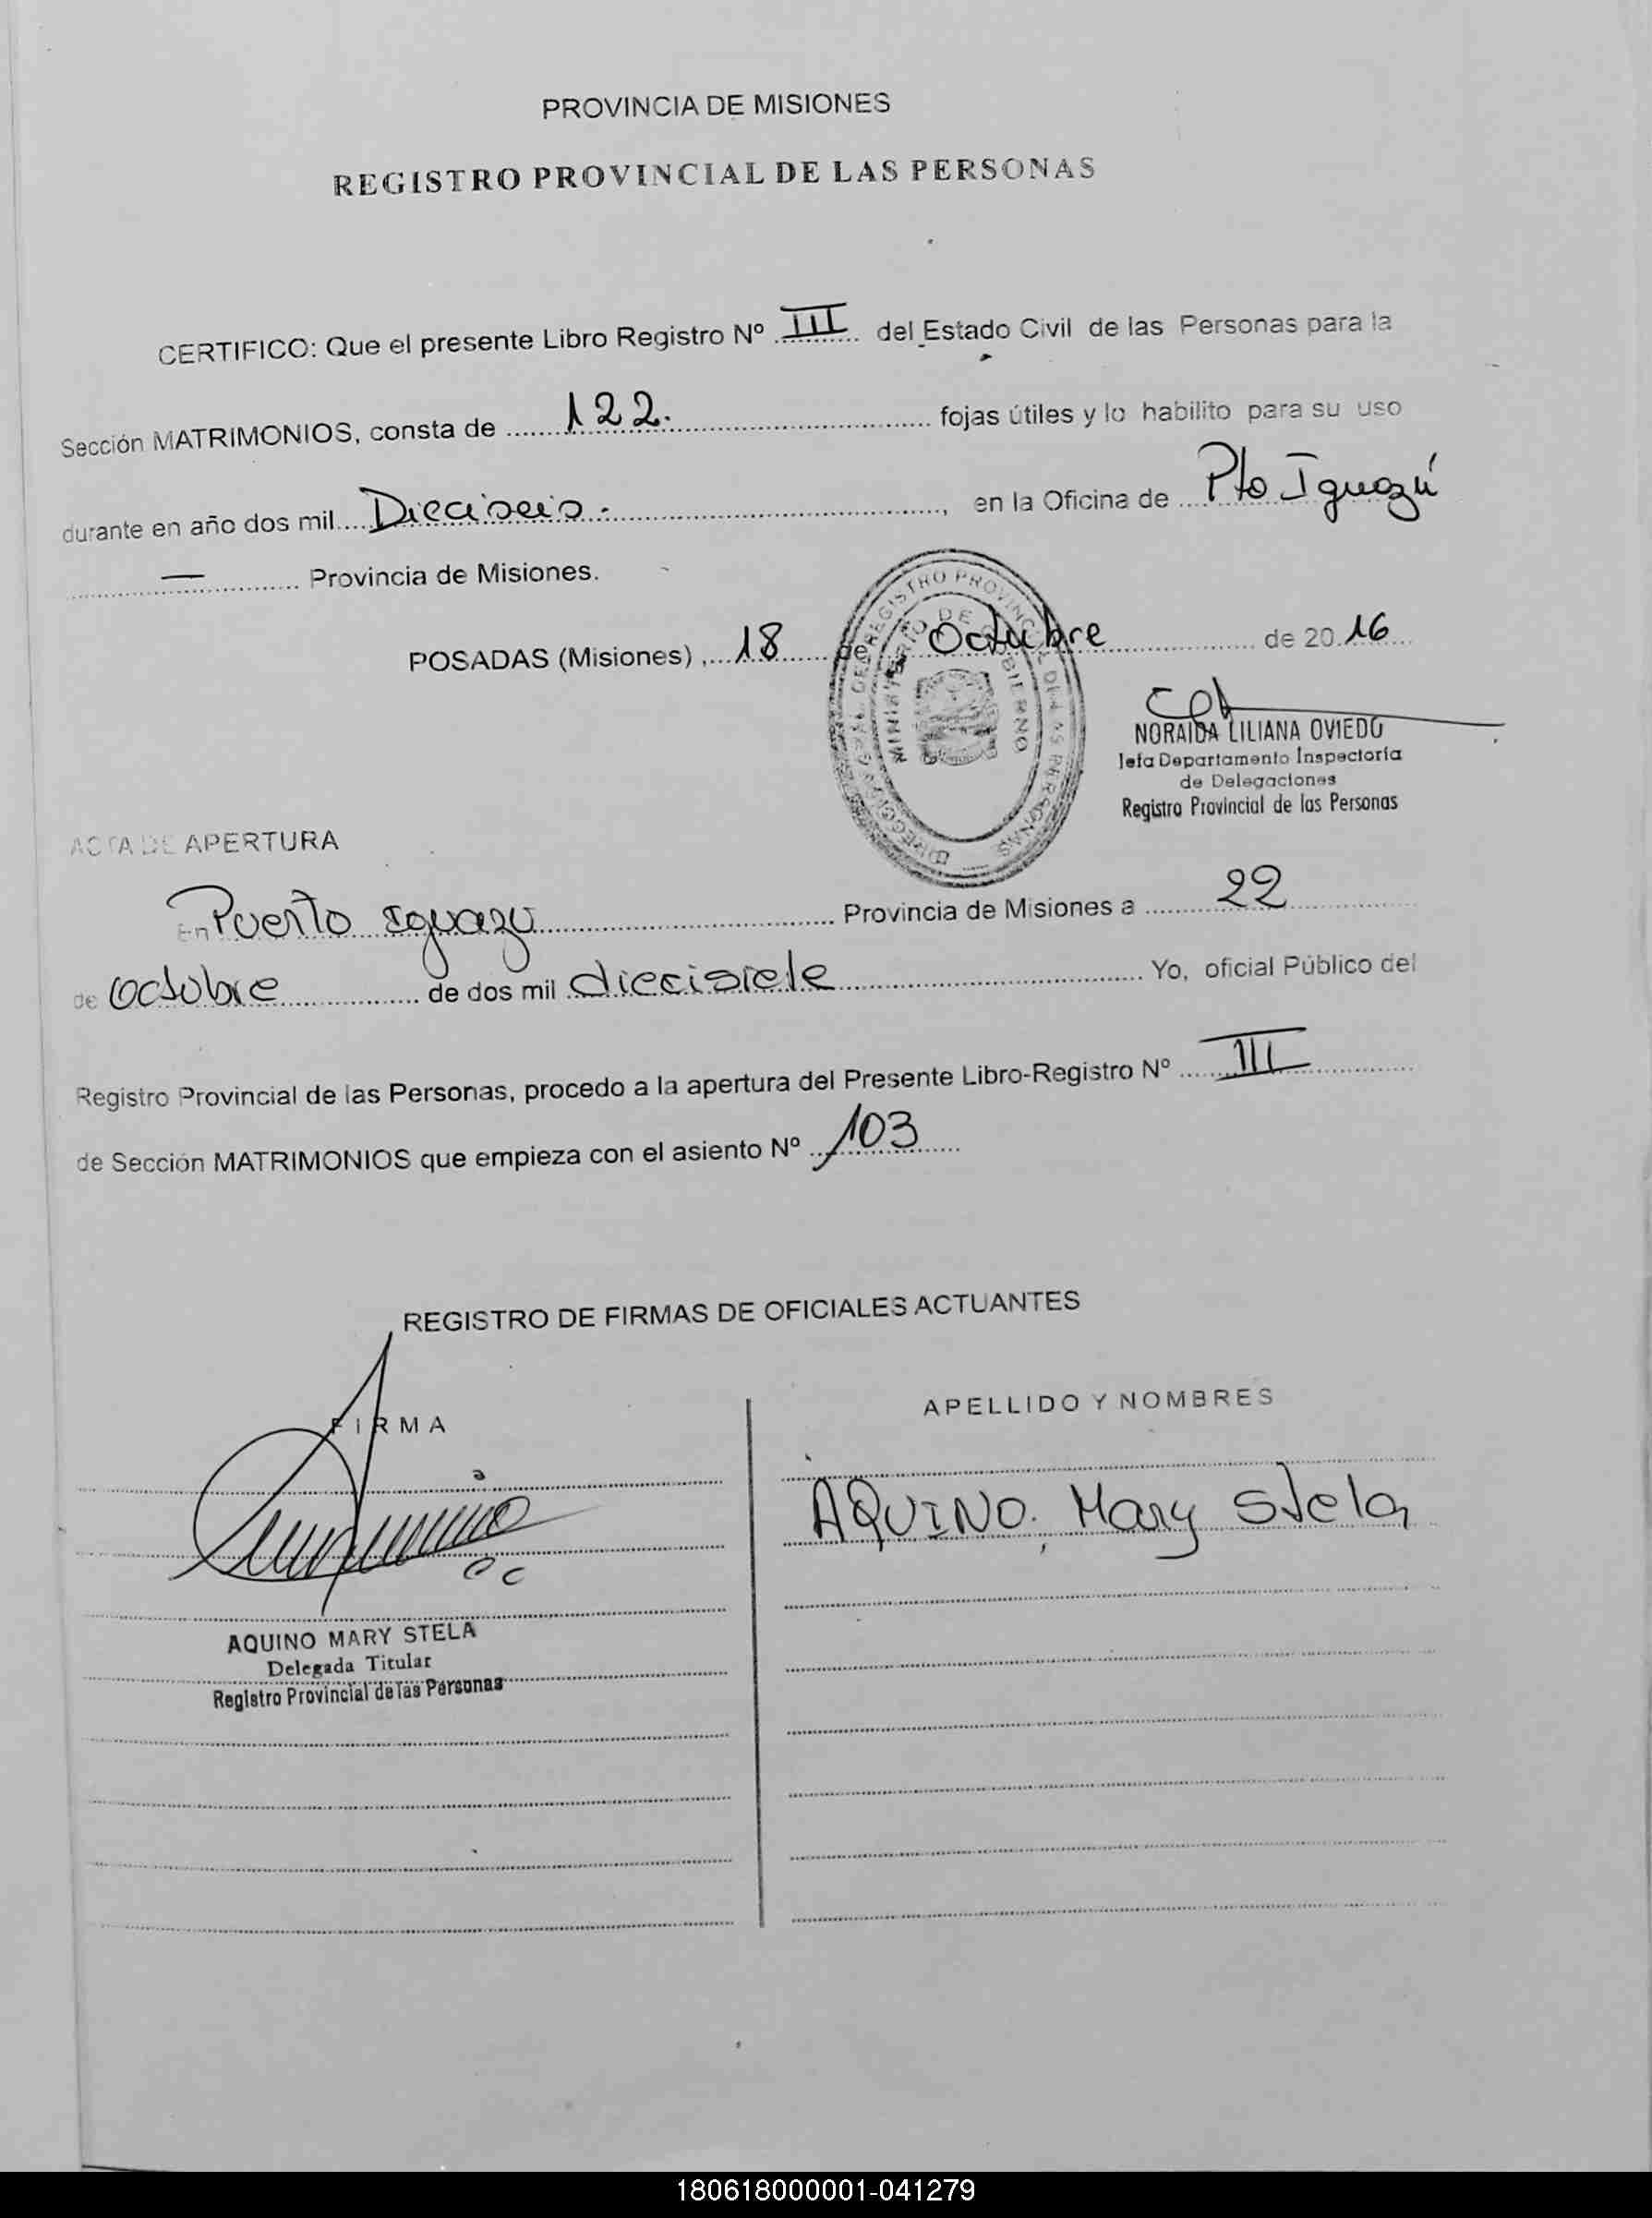 PROVINCIA DE MISIONES
REGISTRO PROVINCIAL DE LAS PERSONAS
CERTIFICO: Que el presente Libro Registro Nº III del Estado Civil de las Personas para la
Sección MATRIMONIOS, consta de 122. fojas útiles y lo habilito para su uso
durante en año dos mil Dieciseis. , en la Oficina de Pto Iguazú
— Provincia de Misiones.
POSADAS (Misiones) , 18 de Octubre de 2016
DIRECCION GENERAL DEL REGISTRO PROVINCIAL DE LAS PERSONAS
MINISTERIO DE GOBIERNO
NORAIDA LILIANA OVIEDO
Jefa Departamento Inspectoría
de Delegaciones
Registro Provincial de las Personas
ACTA DE APERTURA
En Puerto Iguazu Provincia de Misiones a 22
de Octubre de dos mil diecisiete Yo, oficial Público del
Registro Provincial de las Personas, procedo a la apertura del Presente Libro-Registro Nº III
de Sección MATRIMONIOS que empieza con el asiento Nº 103
REGISTRO DE FIRMAS DE OFICIALES ACTUANTES
FIRMA
APELLIDO Y NOMBRES
AQUINO, Mary Stela
AQUINO MARY STELA
Delegada Titular
Registro Provincial de las Personas
180618000001-041279